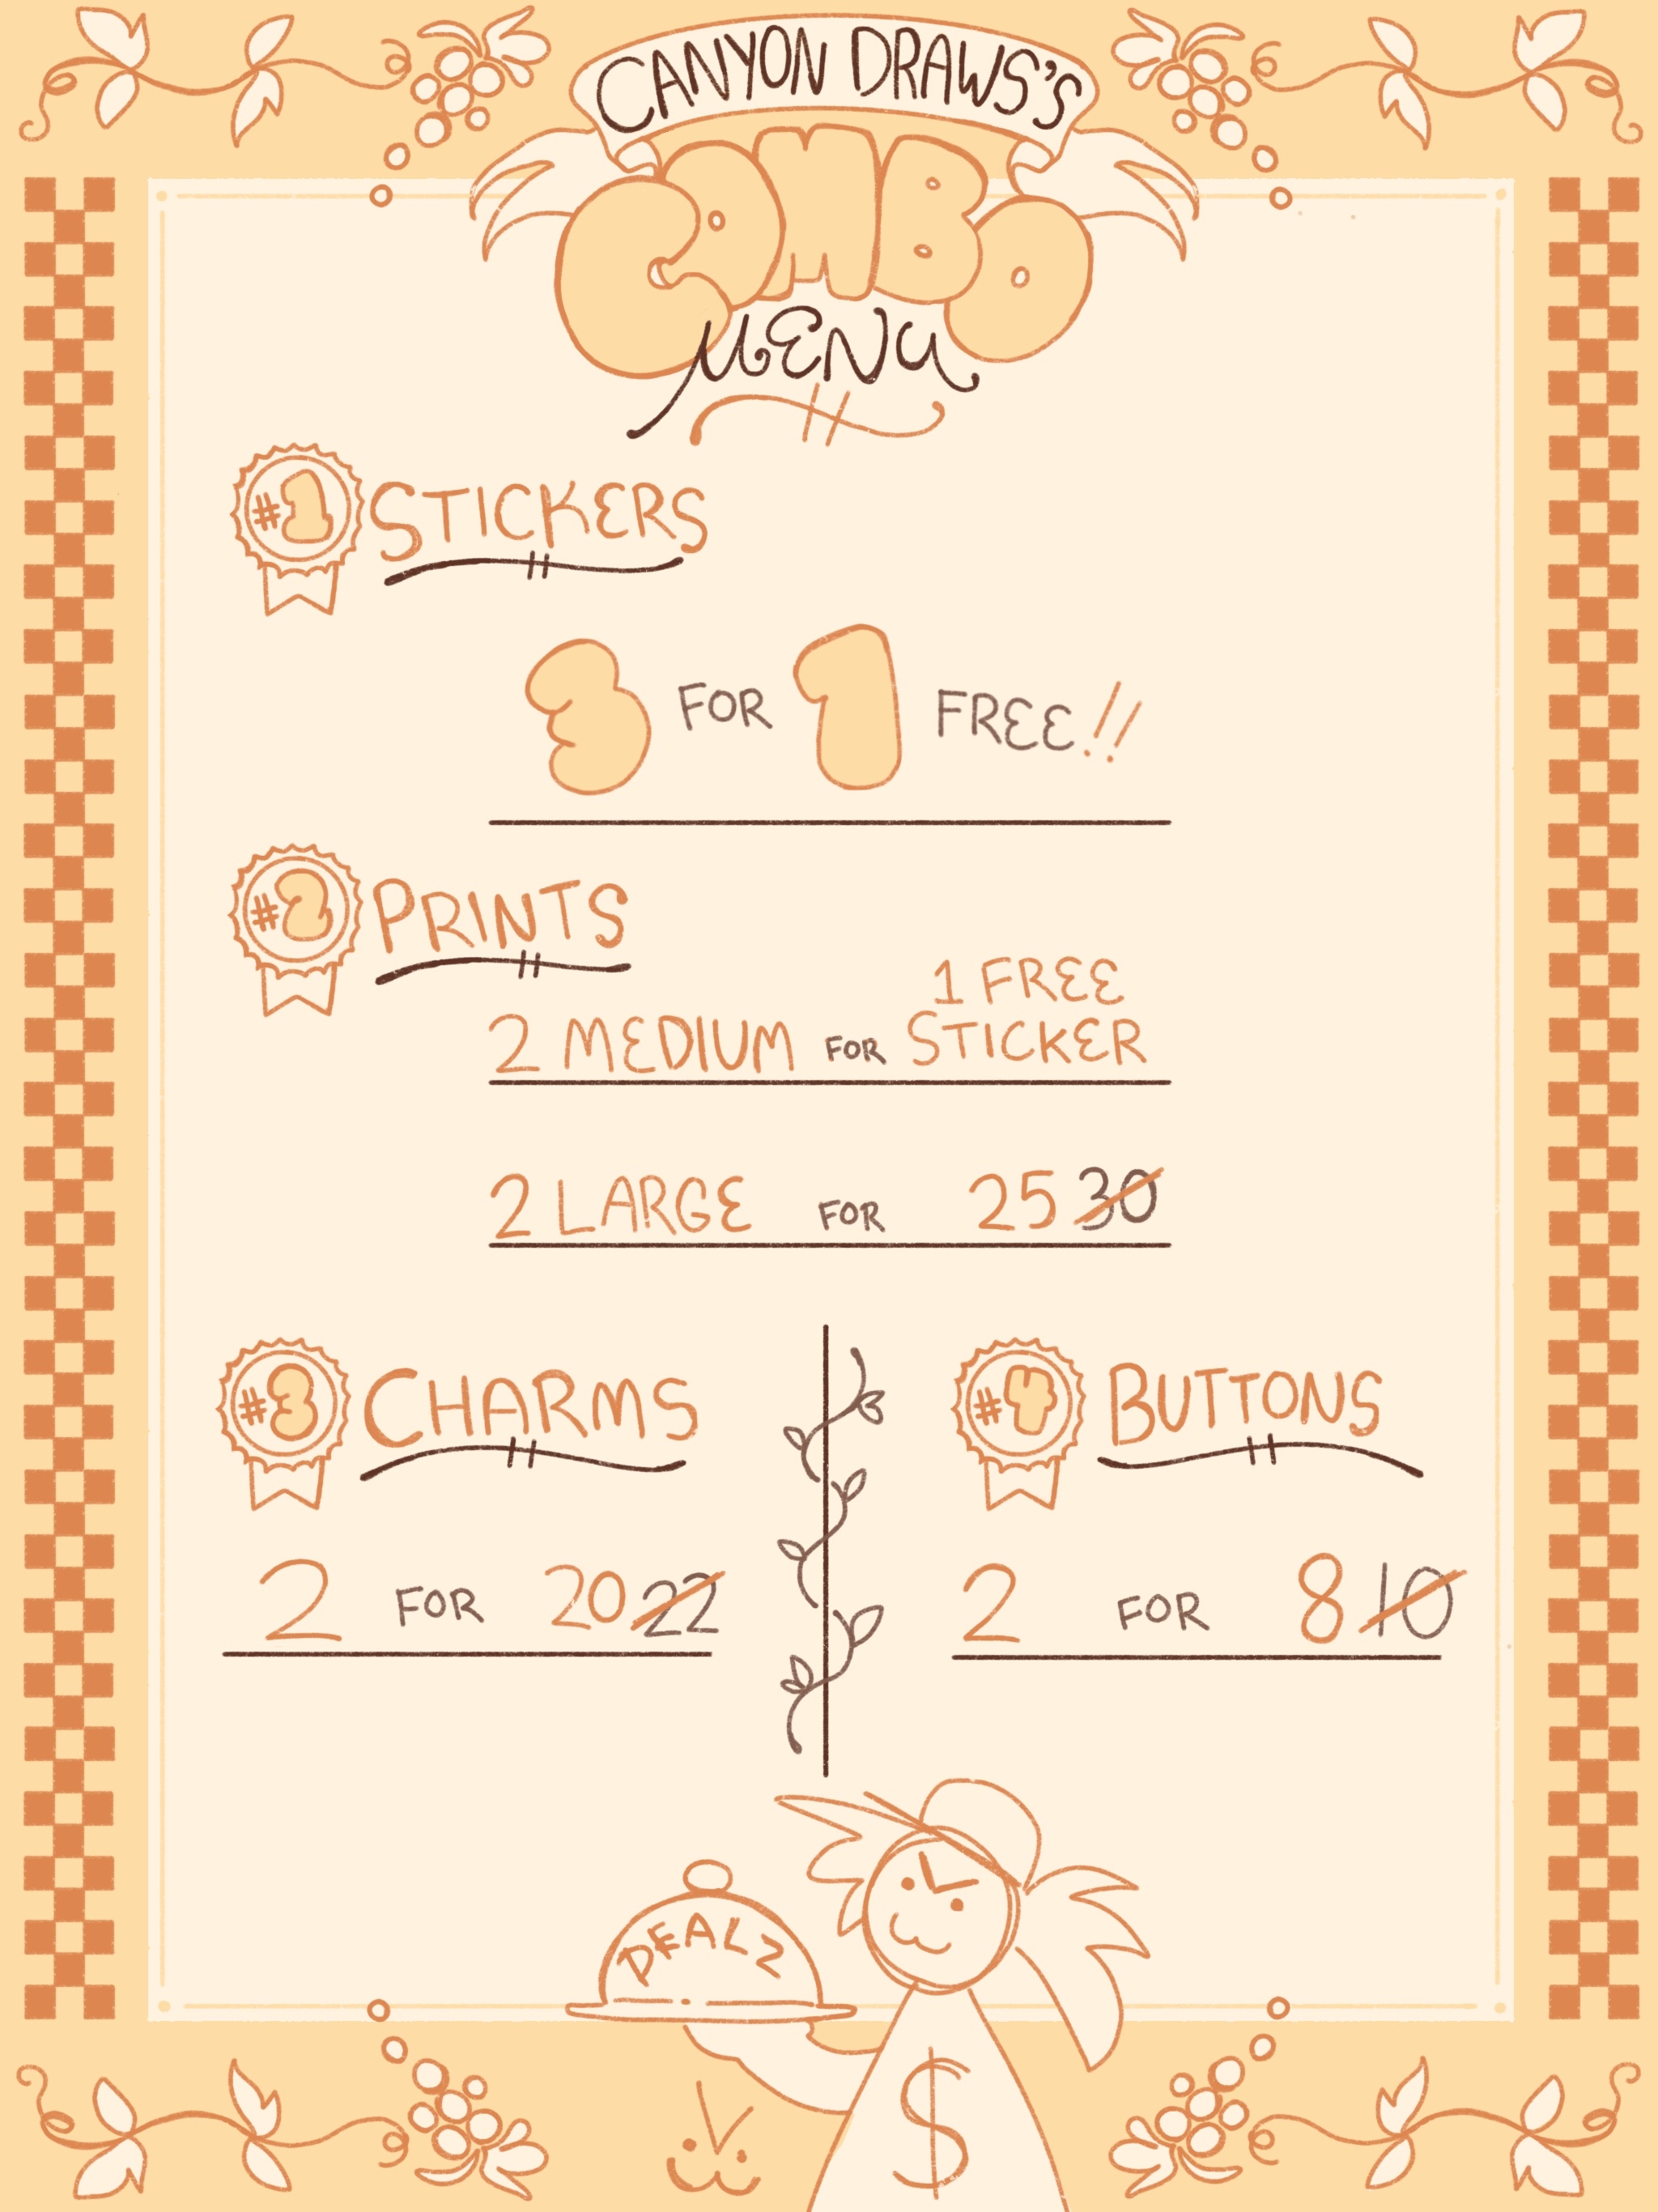 CANYON DRAWS'S
COMBO
MENU
#1 STICKERS
3 FOR 1 FREE!!
#2 PRINTS
2 MEDIUM FOR 1 FREE STICKER
2 LARGE FOR 25 30
#3 CHARMS
2 FOR 20 22
#4 BUTTONS
2 FOR 8 10
DEALZ
$